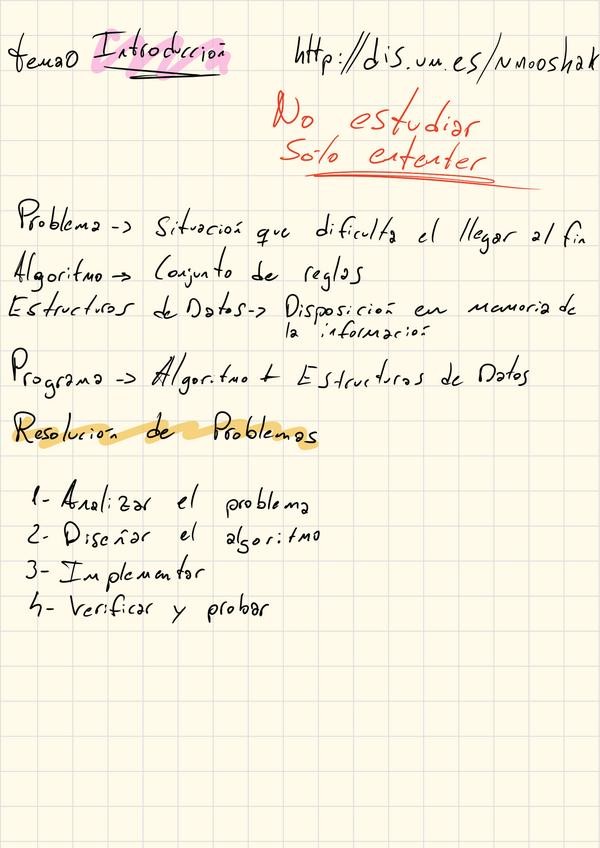 tema0 Introducción
http://dis.um.es/~mooshak
No estudiar
Sólo ententer
Problema -> Situación que dificulta el llegar al fin
Algoritmo -> Conjunto de reglas
Estructuras de Datos -> Disposición en memoria de
la información
Programa -> Algoritmo + Estructuras de Datos
Resolución de Problemas
1- Analizar el problema
2- Diseñar el algoritmo
3- Implementar
4- Verificar y probar